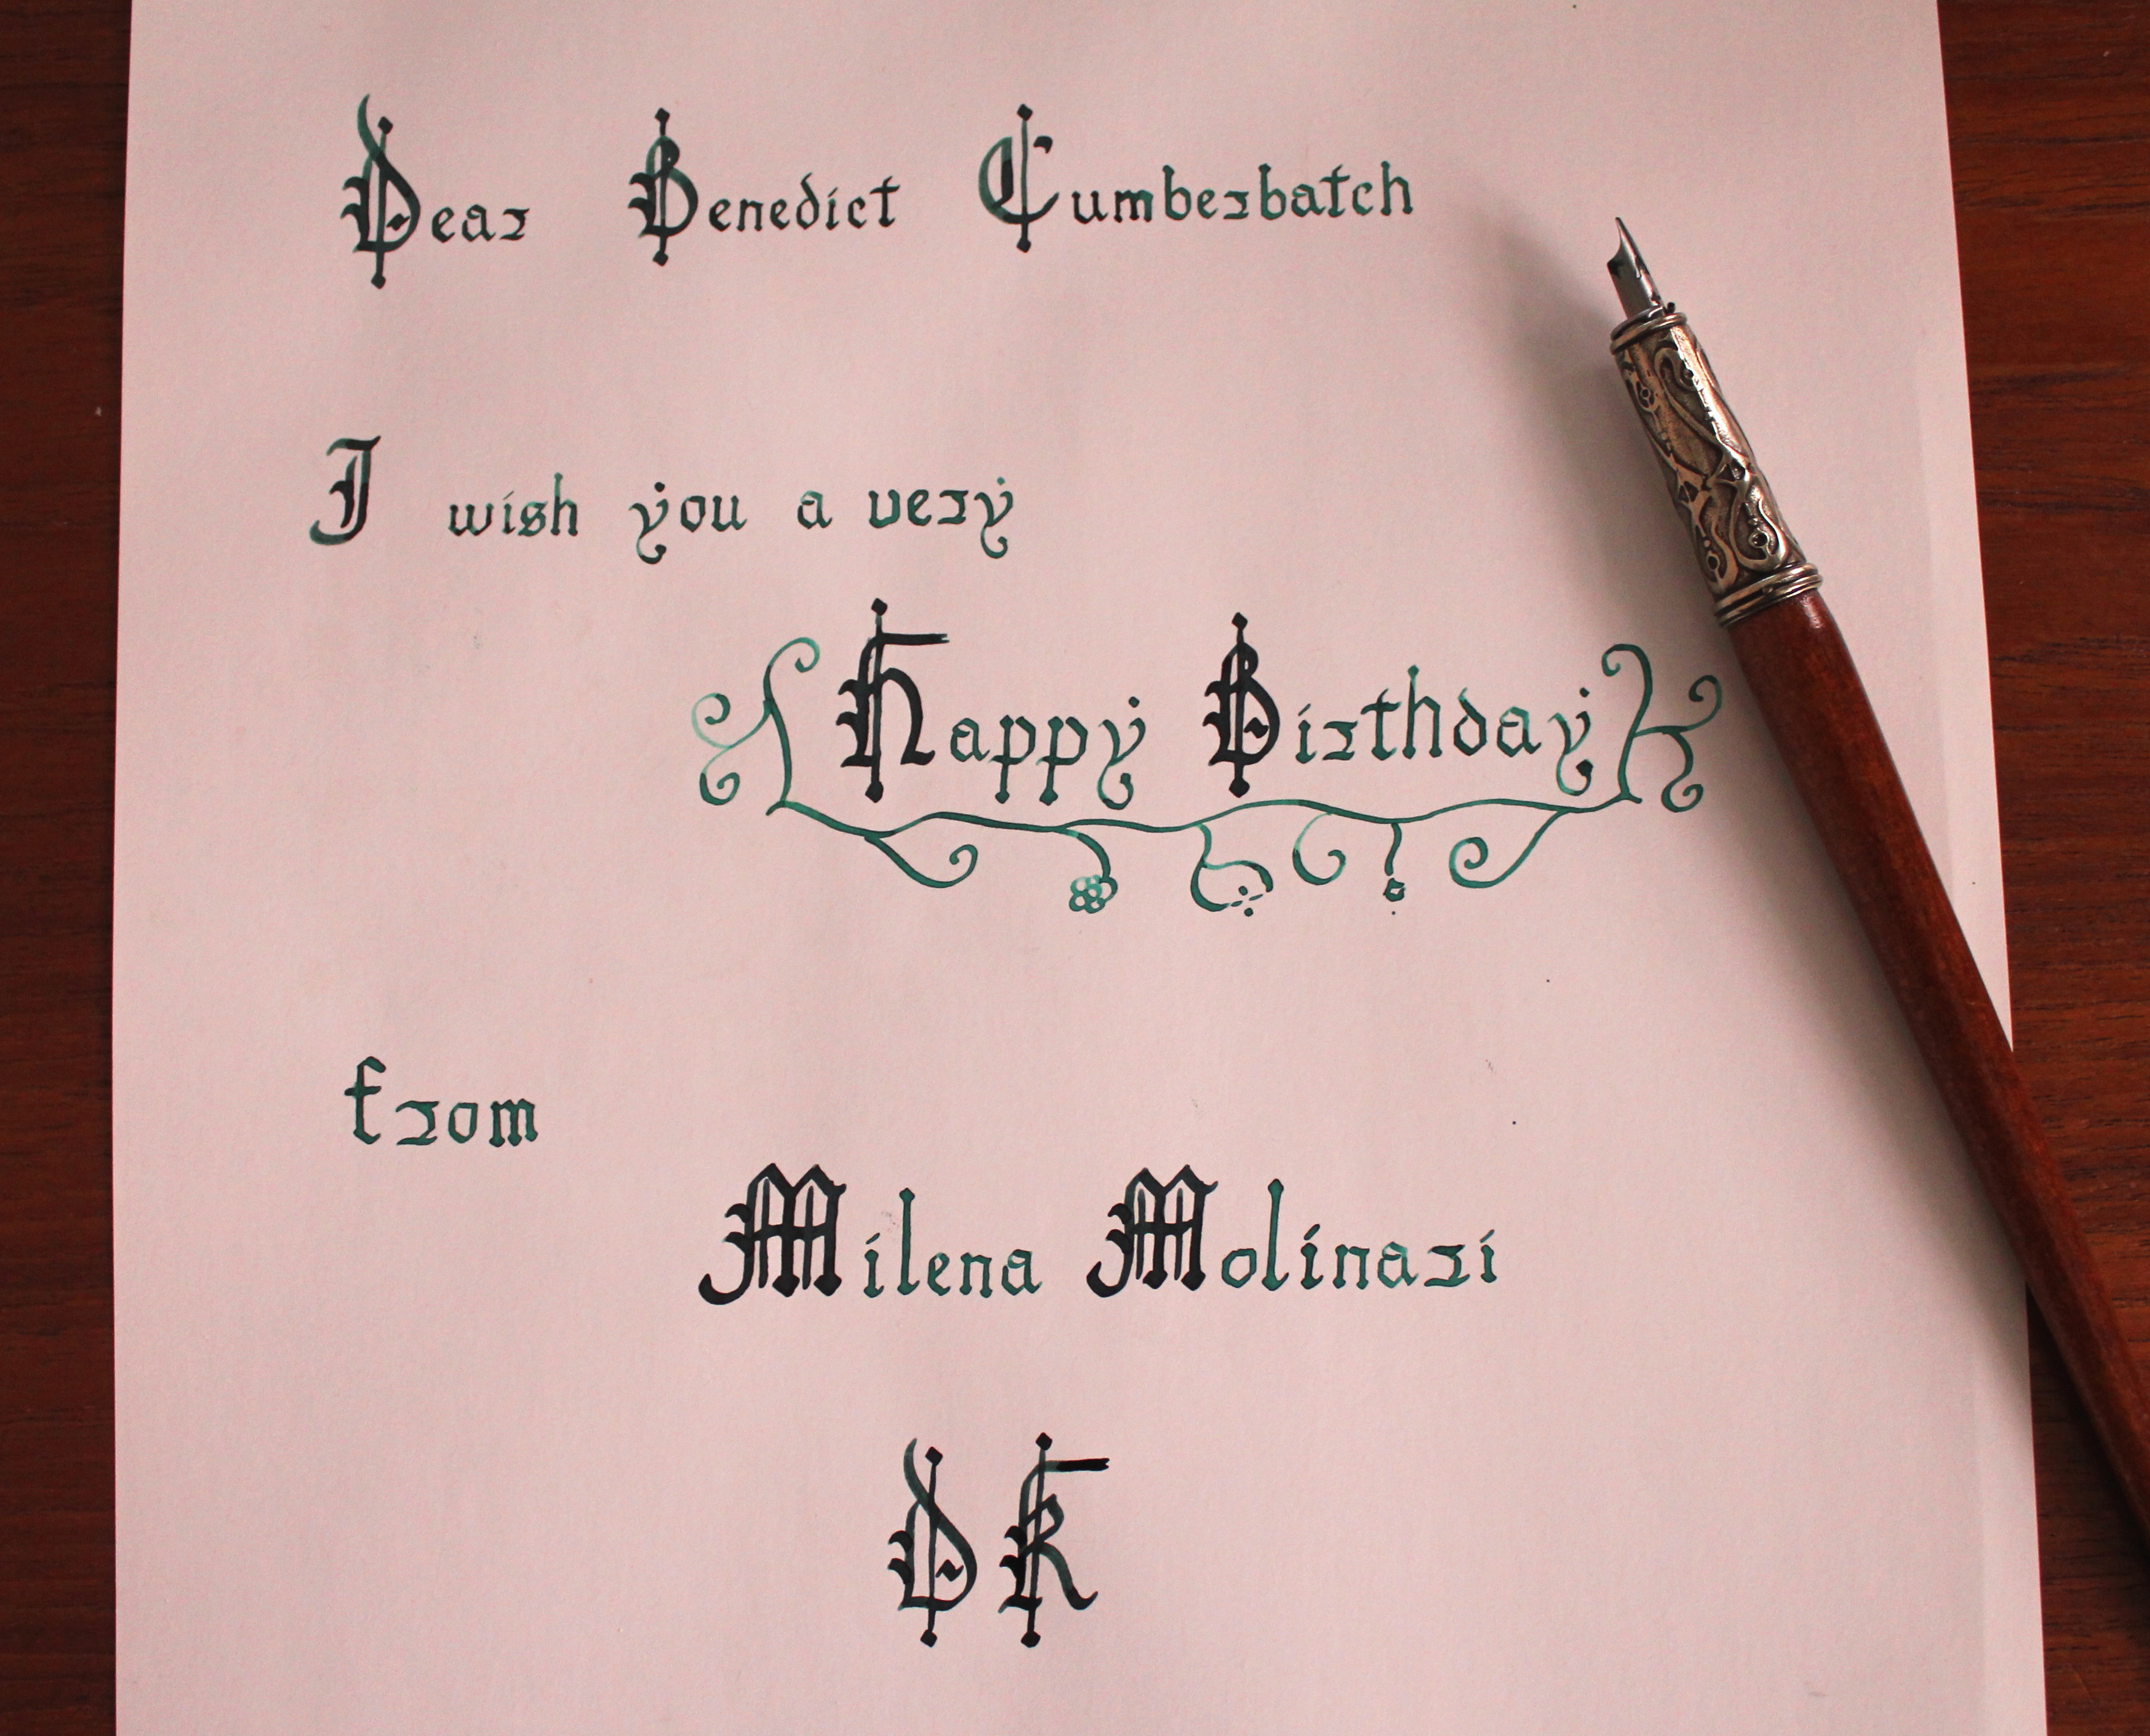 Dear Benedict Cumberbatch
I wish you a very
Happy Birthday
from
Milena Molinari
DK